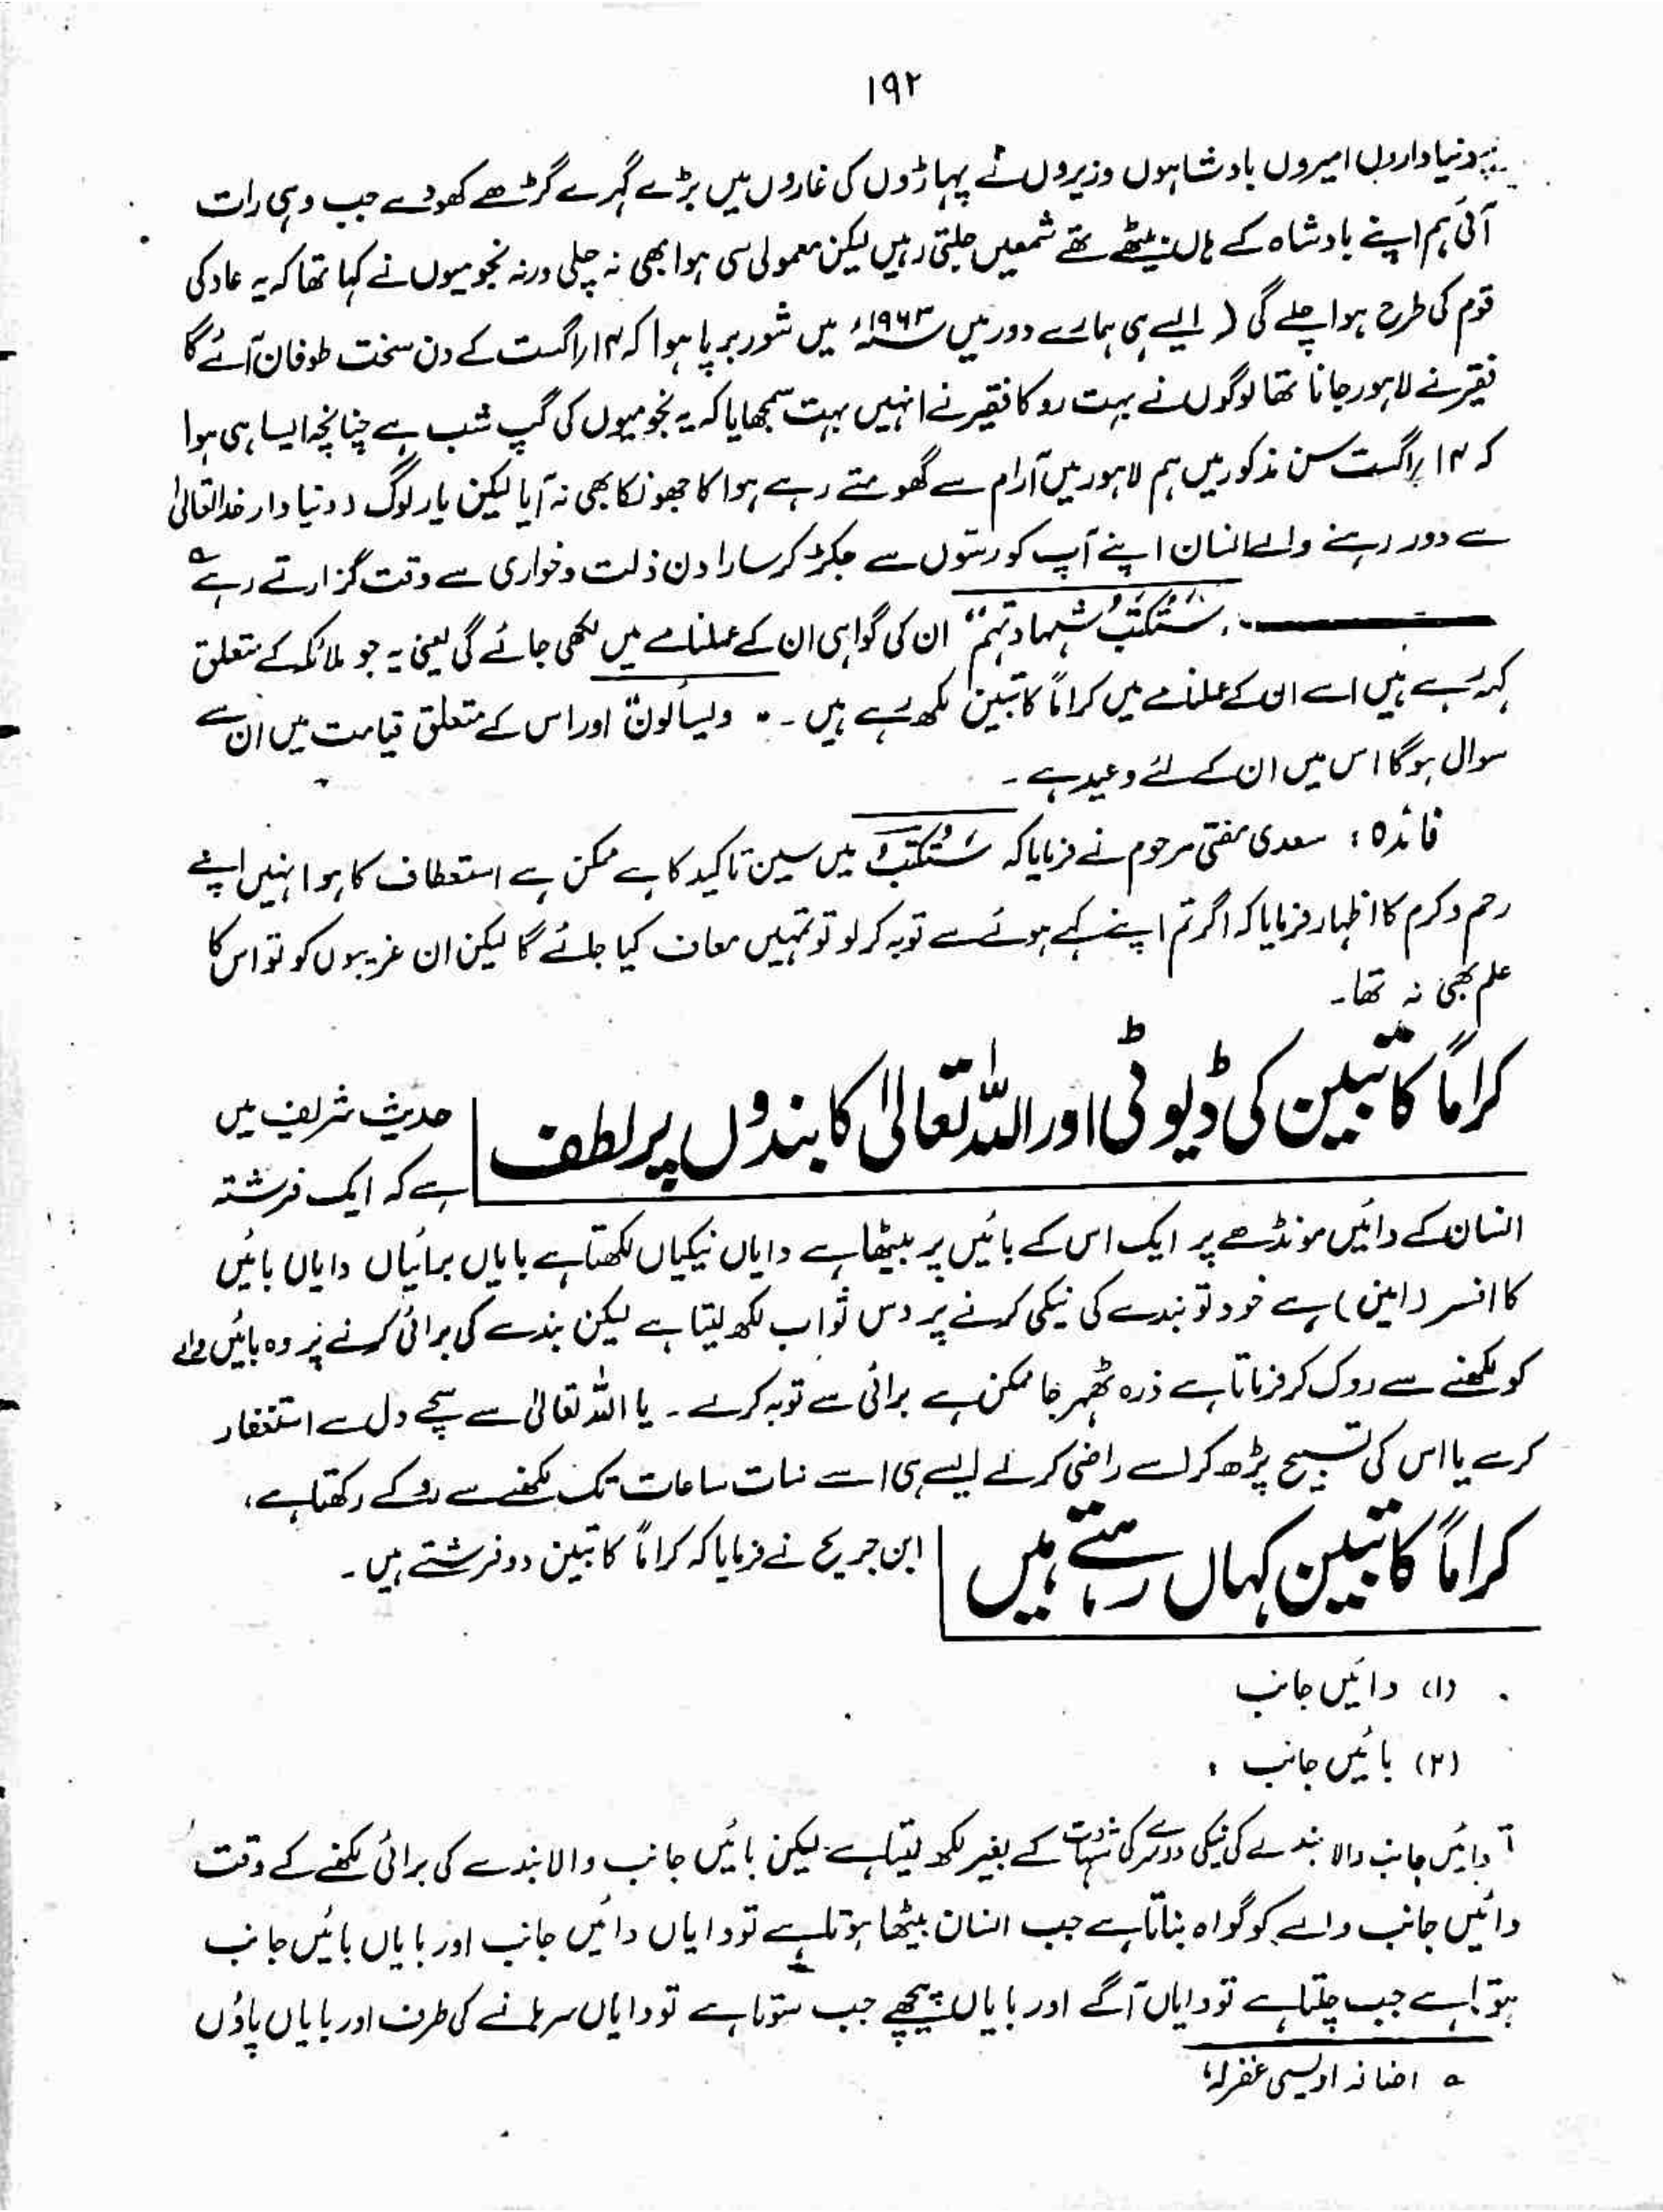 ۱۹۲
پر دنیاداروں امیروں بادشاہوں وزیروں نے پہاڑوں کی غاروں میں بڑے گہرے گڑھے کھودے جب وہی رات
آئی ہم اپنے بادشاہ کے ہاں بیٹھے تھے شمعیں جلتی رہیں لیکن معمولی سی ہوا بھی نہ چلی ورنہ نجومیوں نے کہا تھا کہ یہ عاد کی
قوم کی طرح ہوا چلے گی ( ایسے ہی ہمارے دور میں ۱۹۶۳ء میں شور برپا ہوا کہ ۱۴ اگست کے دن سخت طوفان آئے گا
فقیر نے لاہور جانا تھا لوگوں نے بہت روکا فقیر نے انہیں بہت سمجھایا کہ یہ نجومیوں کی گپ شب ہے چنانچہ ایسا ہی ہوا
کہ ۱۴ اگست سن مذکور میں ہم لاہور میں آرام سے گھومتے رہے ہوا کا جھونکا بھی نہ آیا لیکن یار لوگ ( دنیا دار خدا تعالیٰ
سے دور رہنے والے انسان اپنے آپ کو رسّوں سے جکڑ کر سارا دن ذلت و خواری سے وقت گزارتے رہے ؎
سَتُكْتَبُ شَهادتهم“ ان کی گواہی ان کے عملنامے میں لکھی جائے گی یعنی یہ جو ملائکہ کے متعلق
کہہ رہے ہیں اسے ان کے عملنامے میں کراماً کاتبین لکھ رہے ہیں ۔ • ویسألون اور اس کے متعلق قیامت میں ان سے
سوال ہوگا اس میں ان کے لئے وعید ہے ۔
فائدہ : سعدی مفتی مرحوم نے فرمایا کہ سَتُكْتَبُ میں سین تاکید کا ہے ممکن ہے استعطاف کا ہو انہیں اپنے
رحم و کرم کا اظہار فرمایا کہ اگر تم اپنے کہے ہوئے سے توبہ کر لو تو تمہیں معاف کیا جائے گا لیکن ان غریبوں کو تو اس کا
علم بھی نہ تھا۔
کراماً کاتبین کی ڈیوٹی اور اللہ تعالیٰ کا بندوں پر لطف
حدیث شریف میں
ہے کہ ایک فرشتہ
انسان کے دائیں مونڈھے پر ایک اس کے بائیں پر بیٹھا ہے دایاں نیکیاں لکھتا ہے بایاں برائیاں دایاں بائیں
کا افسر (امین) ہے خود تو بندے کی نیکی کرنے پر دس ثواب لکھ لیتا ہے لیکن بندے کی برائی کرنے پر وہ بائیں والے
کو لکھنے سے روک کر فرماتا ہے ذرہ ٹھہر جا ممکن ہے برائی سے توبہ کرے ۔ یا اللہ تعالیٰ سے سچے دل سے استغفار
کرے یا اس کی تسبیح پڑھ کر اسے راضی کرلے ایسے ہی اسے سات ساعات تک لکھنے سے روکے رکھتا ہے،
کراماً کاتبین کہاں رہتے ہیں
ابن جریج نے فرمایا کہ کراماً کاتبین دو فرشتے ہیں ۔
(۱) دائیں جانب
(۲) بائیں جانب :
دائیں جانب والا بندے کی نیکی دوسرے کی شہادت کے بغیر لکھ لیتا ہے لیکن بائیں جانب والا بندے کی برائی لکھنے کے وقت
دائیں جانب والے کو گواہ بناتا ہے جب انسان بیٹھا ہوتا ہے تو دایاں دائیں جانب اور بایاں بائیں جانب
ہوتا ہے جب چلتا ہے تو دایاں آگے اور بایاں پیچھے جب سوتا ہے تو دایاں سرہانے کی طرف اور بایاں پاؤں
؎ اضافہ اویسی غفرلہٗ